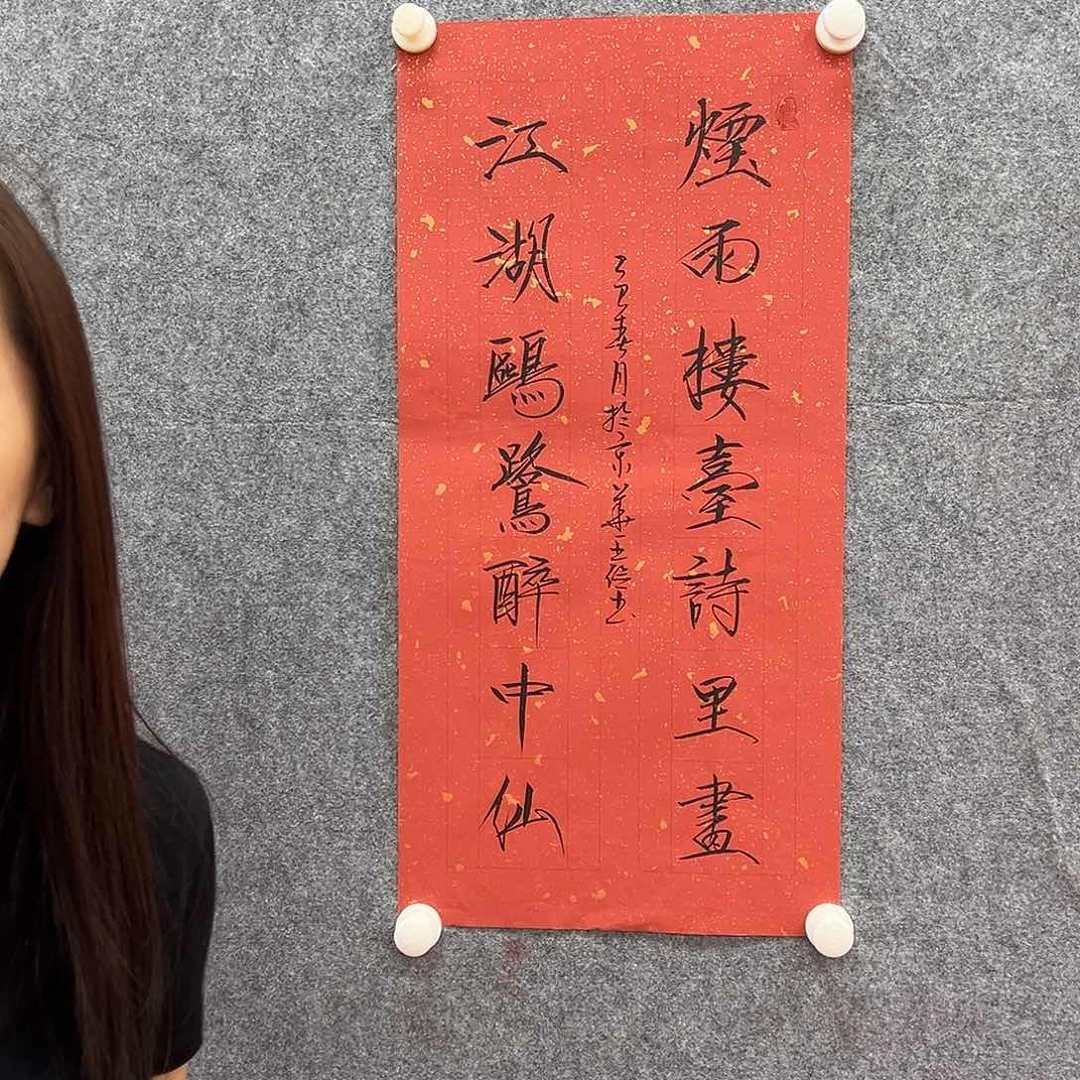 煙雨樓臺詩里畫
江湖鷗鷺醉中仙
春月於京華王